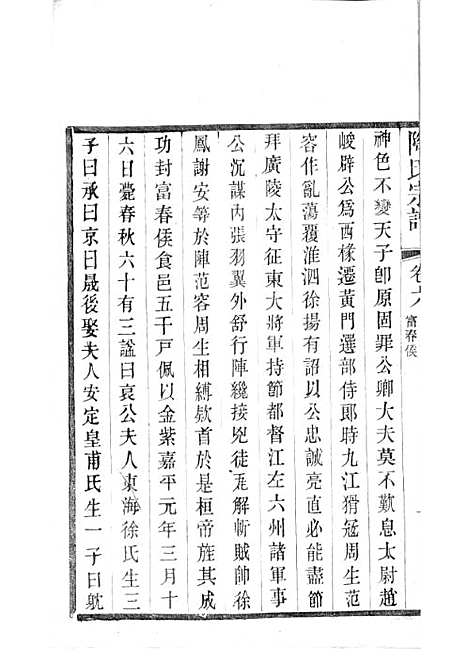 陶氏宗譜 卷六 富春侯
神色不變天子卽原固罪公卿大夫莫不歎息太尉趙
峻辟公爲西椽遷黃門選部侍郞時九江猾冦周生范
容作亂蕩覆淮泗徐揚有詔以公忠誠亮直必能盡節
拜廣陵太守征東大將軍持節都督江左六州諸軍事
公沉謀内張羽翼外舒行陣纔接兇徒瓦解斬賊帥徐
鳳謝安等於陣范容周生相縛欵首於是桓帝旌其成
功封富春侯食邑五千戸佩以金紫嘉平元年三月十
六日薨春秋六十有三諡曰哀公夫人東海徐氏生三
子曰承曰京曰晟後娶夫人安定皇甫氏生一子曰躭